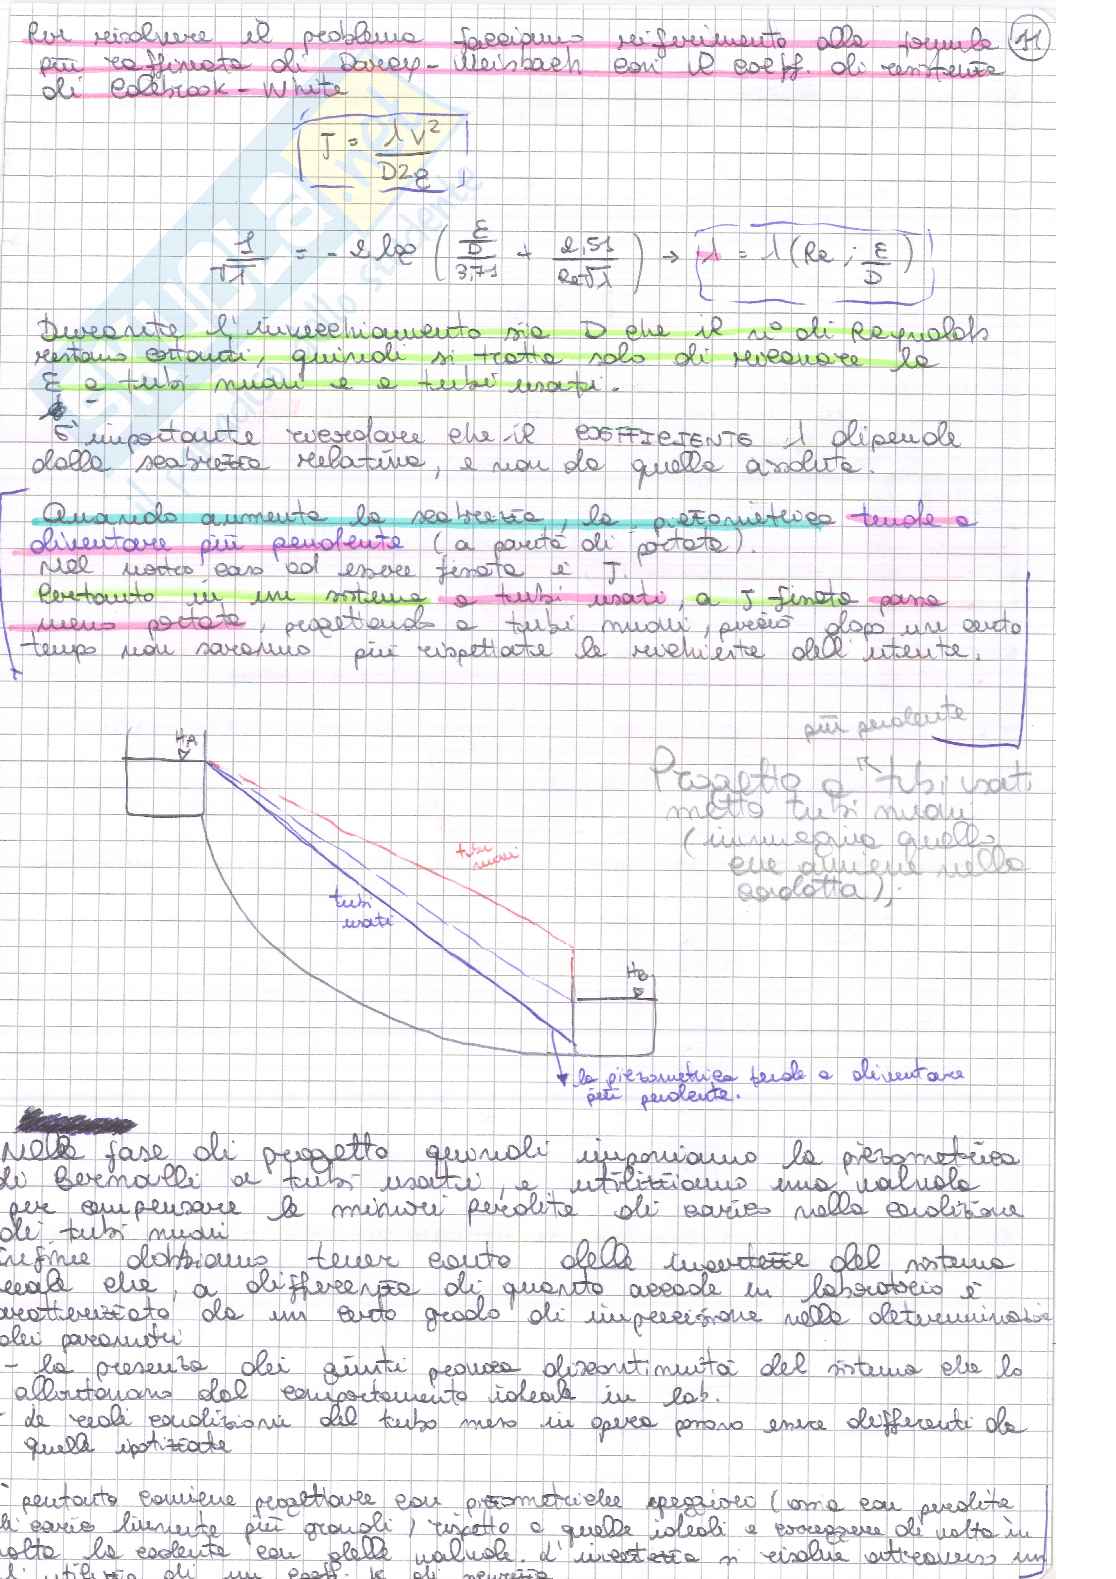 Per risolvere il problema facciamo riferimento alla formula 11
più raffinata di Darcy-Weisbach con il coeff. di resistenza
di Colebrook-White
J = λ V² / D2g
1/√λ = -2 log ( (ε/D)/3,71 + 2,51/(Re√λ) ) → λ = λ (Re ; ε/D)
Durante l'invecchiamento sia D che il n° di Reynolds
restano costanti, quindi si tratta solo di ricavare la
ε a tubi nuovi e a tubi usati.
È importante ricordare che il COEFFICIENTE λ dipende
dalla scabrezza relativa, e non da quella assoluta.
Quando aumenta la scabrezza, la piezometrica tende a
diventare più pendente (a parità di portata).
Nel nostro caso ad essere fissata è J.
Pertanto in un sistema a tubi usati, a J fissata passa
meno portata, progettando a tubi nuovi, perciò dopo un certo
tempo non saranno più rispettate le richieste dell'utente.
più pendente
Progetto a tubi usati
metto tubi nuovi
(immagino quello
che avviene nella
condotta),
HA
tubi
nuovi
tubi
usati
HB
la piezometrica tende a diventare
più pendente.
Nella fase di progetto quindi imponiamo la piezometrica
di Bernoulli a tubi usati, e utilizziamo una valvola
per compensare le minori perdite di carico nella condizione
di tubi nuovi
infine dobbiamo tener conto delle incertezze del sistema
reale che, a differenza di quanto accade in laboratorio è
caratterizzato da un certo grado di imprecisione nella determinazione
dei parametri
- la presenza dei giunti provoca discontinuità del sistema che lo
allontanano dal comportamento ideale in lab.
- le reali condizioni del tubo messo in opera possono essere differenti da
quelle ipotizzate
È pertanto conviene progettare con piezometriche peggiori (ossia con perdite
di carico lievemente più grandi) rispetto a quelle ideali e correggere di volta in
volta la cadente con delle valvole. L'incertezza si risolve attraverso
l'utilizzo di un coeff. K di sicurezza